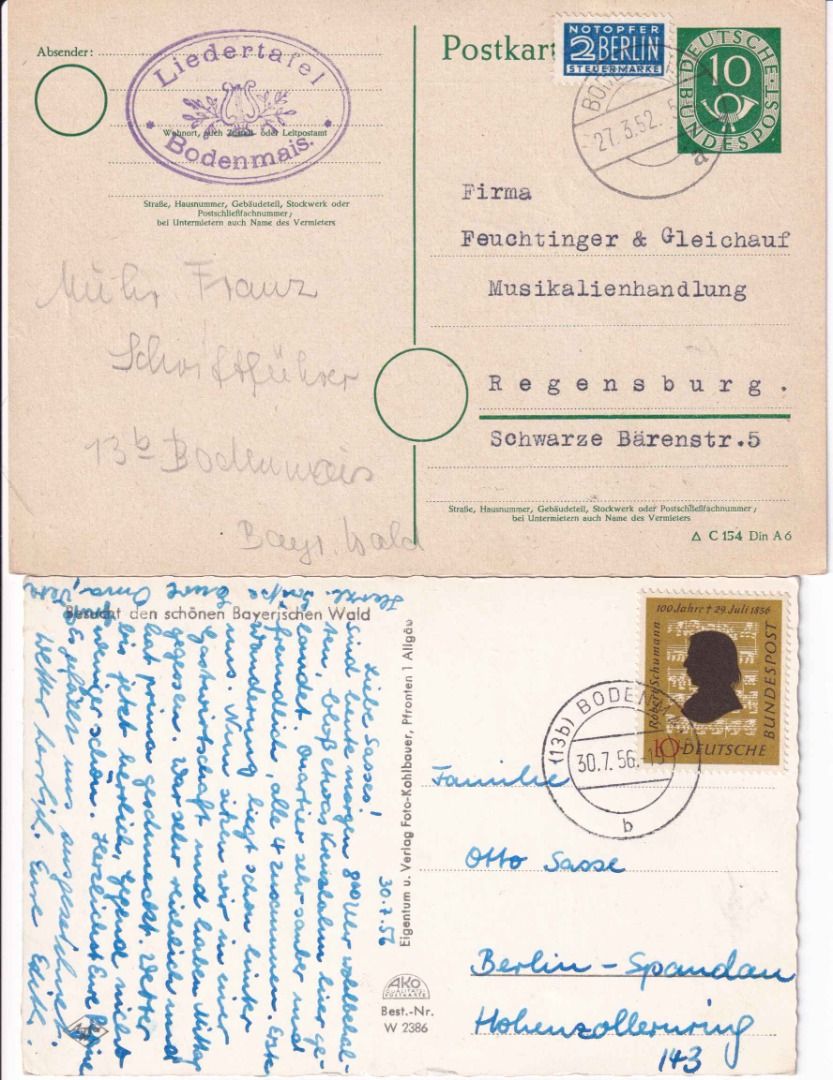 Absender:
Liedertafel
Bodenmais.
Wohnort, auch Zustell- oder Leitpostamt
Straße, Hausnummer, Gebäudeteil, Stockwerk oder
Postschließfachnummer;
bei Untermietern auch Name des Vermieters
Mühr Franz
Schriftführer
13b Bodenmais
Bayr. Wald
Postkart
NOTOPFER
2 BERLIN
STEUERMARKE
27.3.52.
a
10
DEUTSCHE
BUNDESPOST
Firma
Feuchtinger & Gleichauf
Musikalienhandlung
Regensburg.
Schwarze Bärenstr.5
Straße, Hausnummer, Gebäudeteil, Stockwerk oder Postschließfachnummer;
bei Untermietern auch Name des Vermieters
C 154 Din A6
Besucht den schönen Bayerischen Wald
30.7.56
Liebe Sasses!
Sind heute morgen 8 Uhr wohlbehal-
ten, bloß etwas kreislahm hier ge-
landet. Quartier sehr sauber und
freundlich, alle 4 zusammen. Erste
Wanderung liegt schon hinter
uns. Nun sitzen wir in einer
Gastwirtschaft und haben Mittag
gegessen. War sehr reichlich und
hat prima geschmeckt. Wetter
bis jetzt herrlich, Gegend nicht
weniger schön. Herzlichst Eure
Es gefällt uns ausgezeichnet.
Wetter herrlich. Eure Edith.
Herzl. Grüße Eure Oma
Eigentum u. Verlag Foto-Kohlbauer, Pfronten 1 Allgäu
AKO
QUALITÄTS
POSTKARTE
Best.-Nr.
W 2386
100 Jahre † 29 Juli 1856
Robert Schumann
10 DEUTSCHE
BUNDESPOST
(13b) BODENM
30.7.56.-15
b
Familie
Otto Sasse
Berlin-Spandau
Hohenzollernring
143